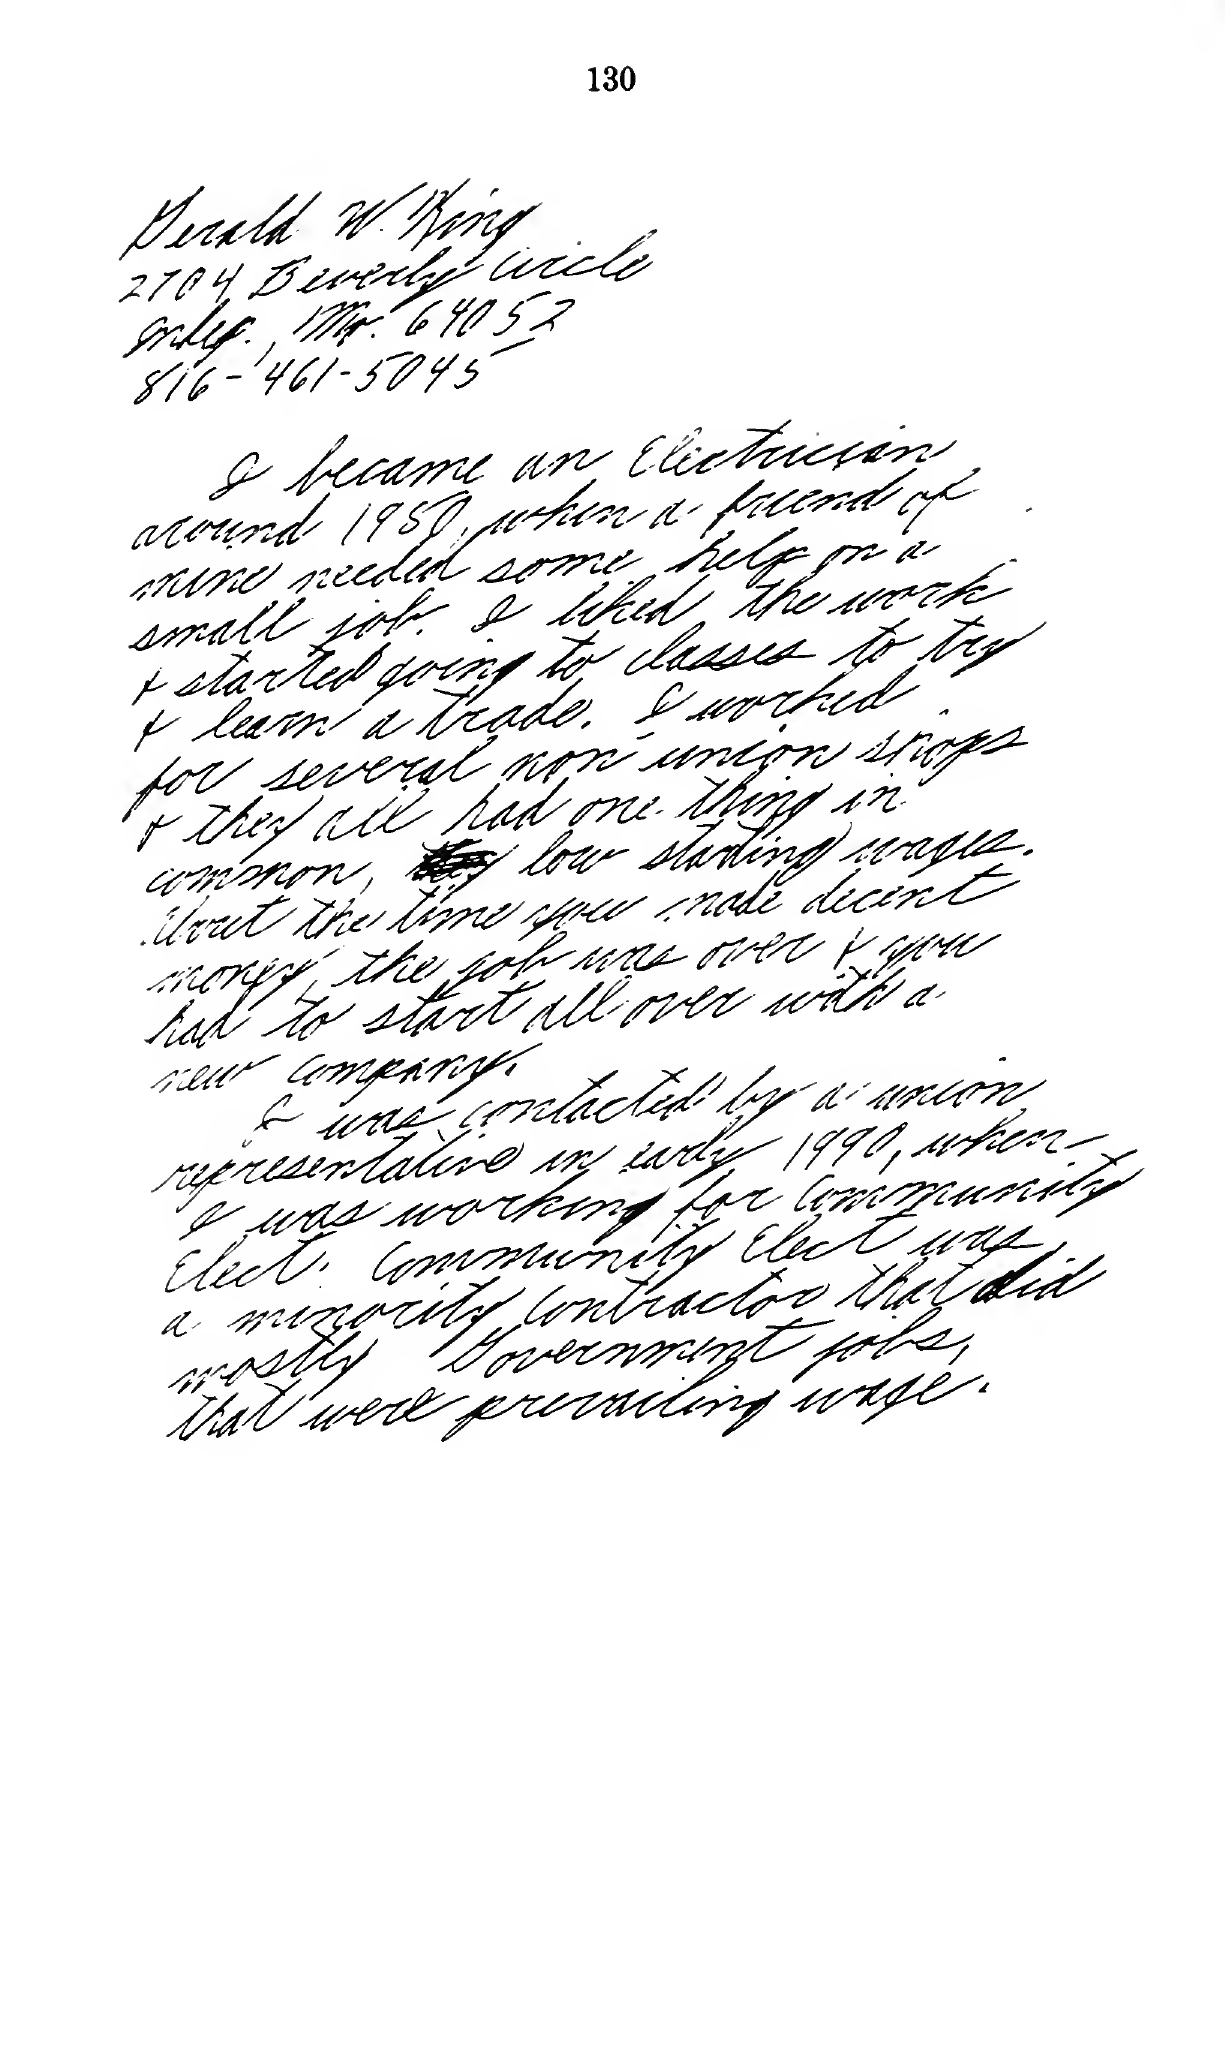 130
Gerald W. King
2704 Beverly Circle
Indep., Mo. 64052
816-461-5045
I became an Electrician
around 1980, when a friend of
mine needed some help on a
small job. I liked the work
& started going to classes to try
& learn a trade. I worked
for several non union shops
& they all had one thing in
common, low starting wages.
the time you made decent
money, the job was over & you
had to start all over with a
new company.
I was contacted by a union
representative in early 1990, when
I was working for Community
Elect. Community Elect was
a minority contractor that did
mostly Government jobs,
that were prevailing wage.